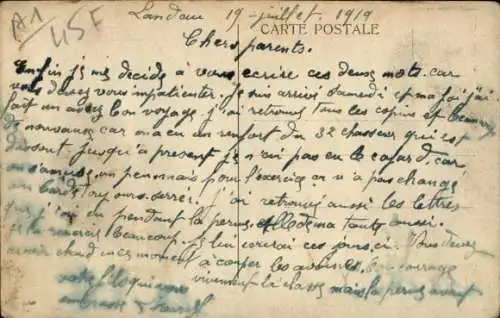 A1
45F
Landau 19 juillet 1919
CARTE POSTALE
Chers parents.
Enfin je me décide à vous écrire ces deux mots car
vous devez vous impatienter. Je suis arrivé samedi et ma foi j'ai
fait un assez bon voyage j'ai retrouvé tous les copins et beaucoup
de nouveaux car on a eu un renfort du 32 chasseur qui est
dissout jusqu'a present je n'ai pas eu le cafard. car
on s'amuse un peu mais pour l'exercice ça n'a pas changé
les bardes toujours serrés. j'ai retrouvé aussi les lettres
que j'ai eu pendant la perme et de ma tante aussi.
je la remercie beaucoup je lui ecrirai ces jours ci. Vous devez
avoir chaud en ces moment à couper les avoines. bon courage
vivement la classe mais la perme avant
votre fils qui vous
embrasse